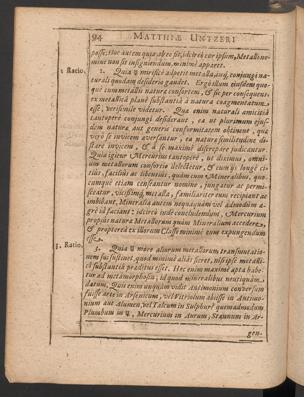 94 MATTHIÆ UNTZERI
posse; Hoc autem quia ab eo sic, sicut ipsum, Metalli no-
mine non sit insigniendum, minimè apparet.
2 Ratio. 2. Quia ☿ mirificè adpetit metalla, iisq́; conjungi na-
turali quodam desiderio gaudet. Ergò illum ejusdem quo-
que cum metallis naturæ consortem, & sic per consequens
ex metallicâ planè substantiâ à natura coagmentatum
esse, verisimile videtur. Quæ enim naturali amicitiâ
tantoperè conjungi desiderant, ea ut plurimum ejus-
dem naturæ aut generis conformitatem obtinent, quæ
verò se invicem aversantur, ea naturæ similitudine di-
stare invicem, & à se maximè discrepare judicantur.
Quia igitur Mercurius tantoperè, ut diximus, omni-
um metallorum consortio delectetur, & cum iis longè ci-
tius, facilius ac libentiùs, quàm cum Mineralibus, quo-
cunque etiam censeantur nomine, jungatur ac permi-
sceatur, vicissimq́; metalla, familiariter eum recipiant ac
imbibant, Mineralia autem nequaquàm vel admodùm æ-
grè id faciant: idcircò inde concludendum, Mercurium
propiùs naturæ Metallorum quàm Mineralium accedere,
& proptereà ex illorum Classe minimè eum expungendum
esse.
3. Ratio. 3. Quia ☿ more aliorum metallorum transmutatio-
nem sui sustinet, quod minimè aliàs fieret, nisi ipse metalli-
câ substantiâ præditus esset. Hæc enim maximè apta habe-
tur ad metamorphosin; id quod mineralibus neutiquàm
datum. Quis enim unquàm vidit Antimonium conversum
fuisse arte in Arsenicum, vel Vitriolum abiisse in Antimo-
nium aut Alumen, vel Talcum in Sulphur? quemadmodum
Plumbum in ☿, Mercurium in Aurum, Stannum in Ar-
gen-